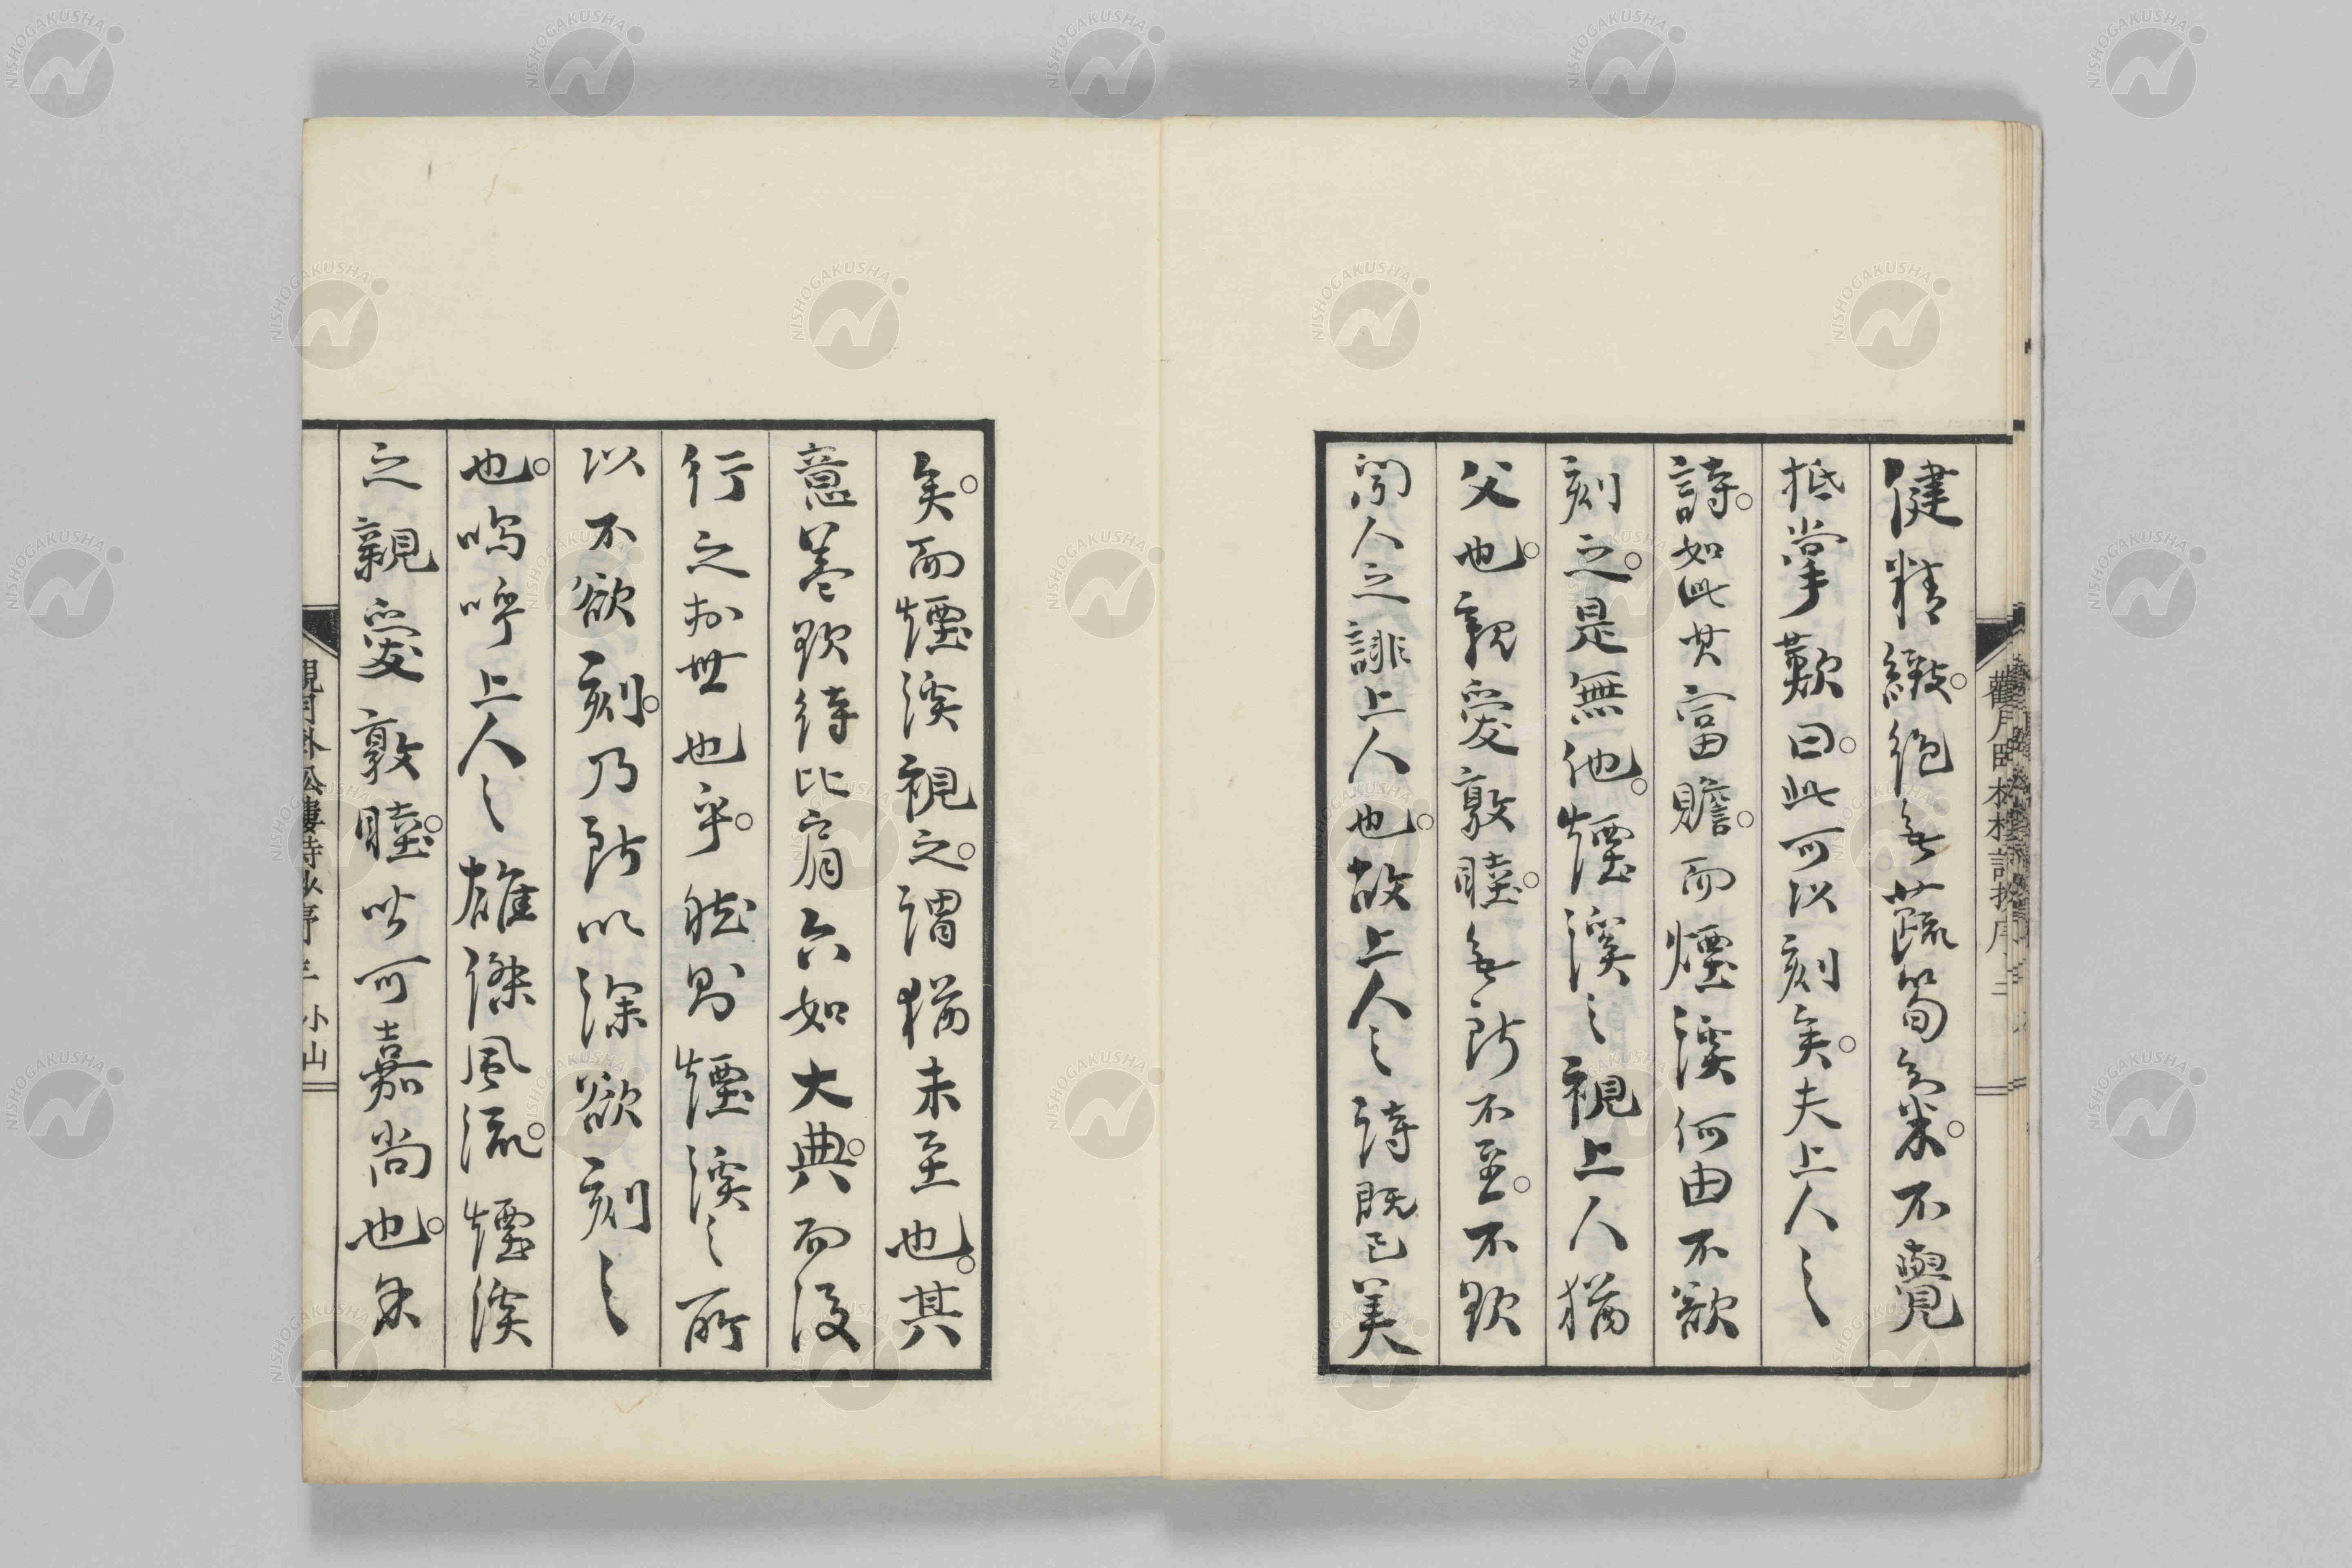 健精緻。絶無蔬筍気米。不覺
抵掌歎曰。此可以刻矣。夫上人之
詩。如此其富贍。而煙溪何由不欲
刻之。是無他。煙溪之視上人猶
父也。親愛敦睦。無所不至。不欲
聞人之誹上人也。故上人之詩既已美
矣。而煙溪視之。謂猶未至也。其
意蓋欲待比肩六如大典。而後
行之於世也乎。然則煙溪之所
以不欲刻。乃所以深欲刻之
也。嗚呼上人之雄傑風流。煙溪
之親愛敦睦。皆可嘉尚也。余
小山
NISHOGAKUSHA